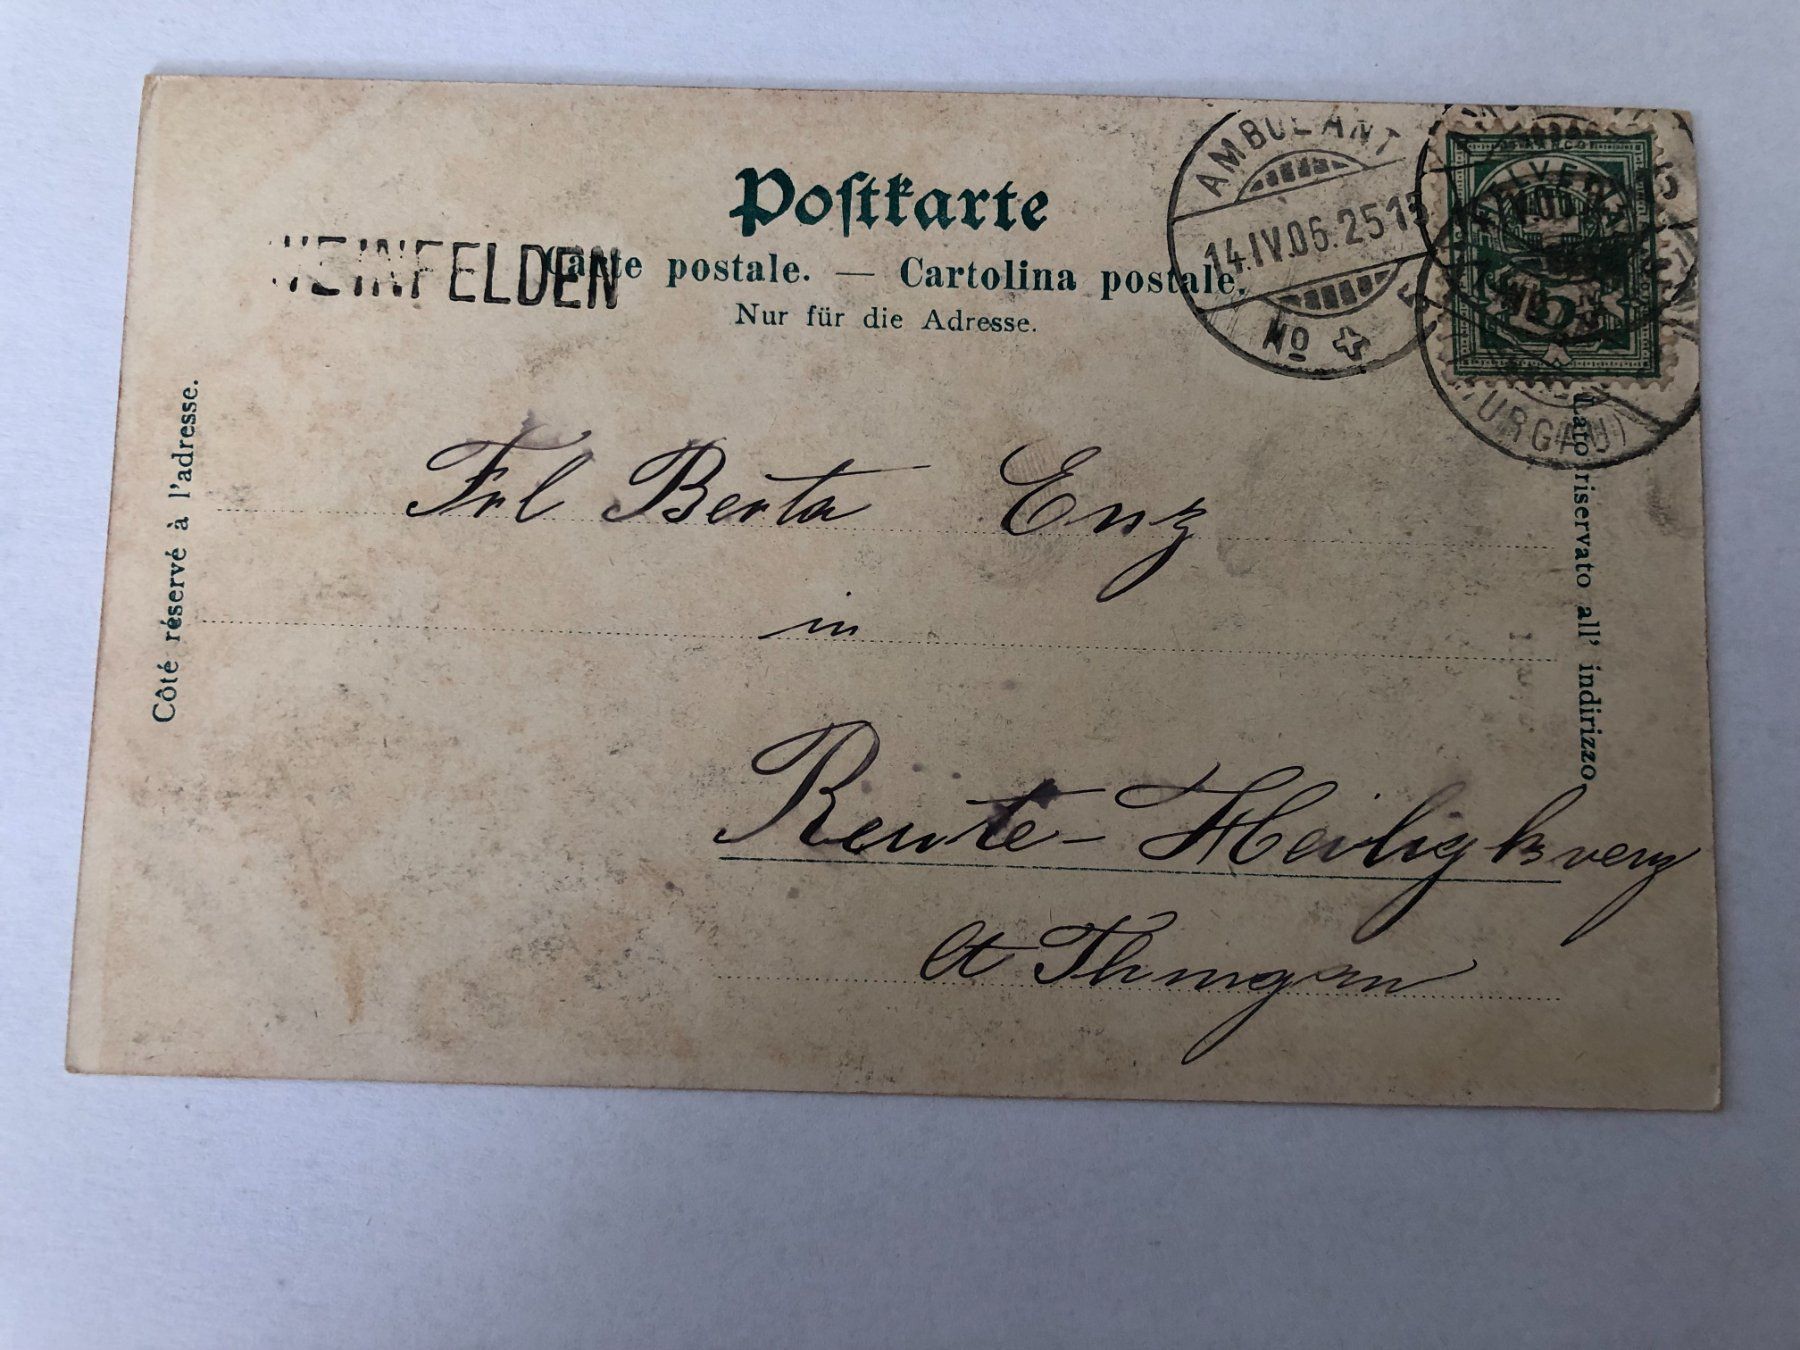 Postkarte
Carte postale. — Cartolina postale.
Nur für die Adresse.
WEINFELDEN
AMBULANT
14.IV.06.25
No
HELVETIA
FRANCO
5
(THURGAU)
Côté réservé à l'adresse.
Lato riservato all' indirizzo
Frl Berta Enz
in
Reute-Heiligkreuz
Ct Thurgau